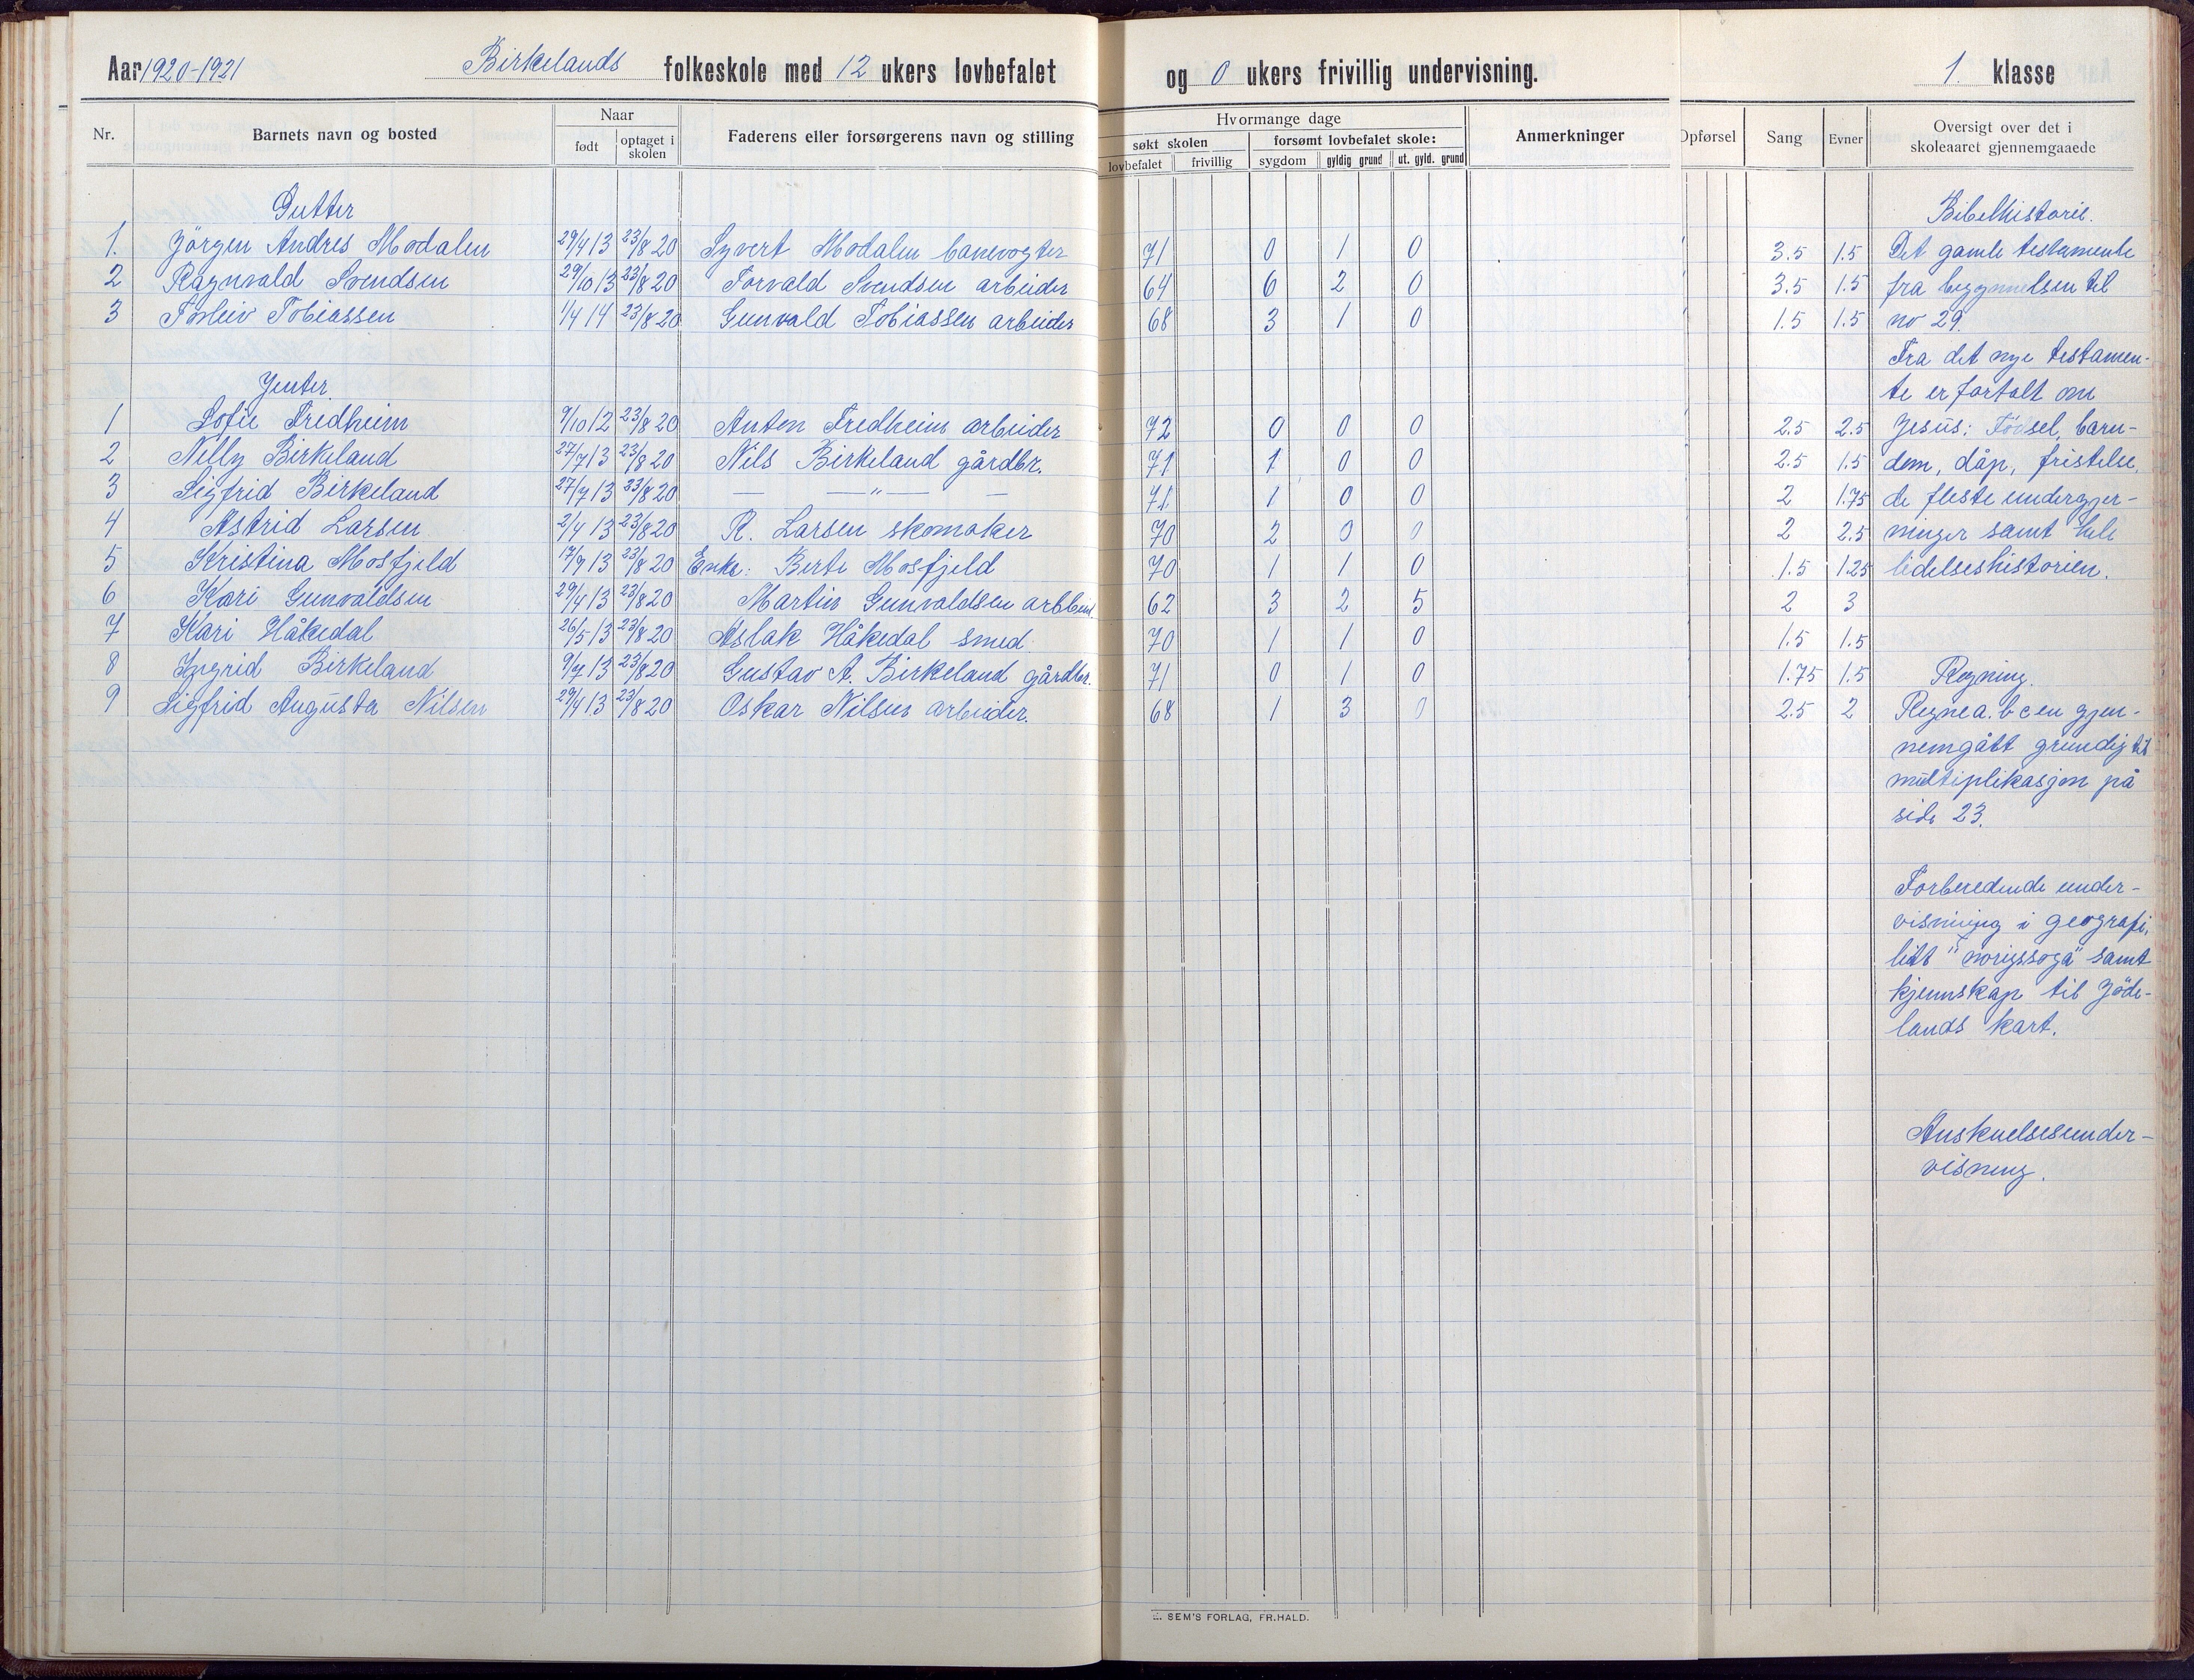 Aar 1920-1921 Birkelands folkeskole med 12 ukers lovbefalet og 0 ukers frivillig undervisning. 1. klasse
Nr. Barnets navn og bosted Naar født optaget i skolen Faderens eller forsørgerens navn og stilling
Hvormange dage
søkt skolen forsømt lovbefalet skole:
lovbefalet frivillig sygdom gyldig grund ut. gyld. grund
Anmerkninger
Opførsel Sang Evner Oversigt over det i skoleaaret gjennemgaaede
Gutter
1. Jörgen Andres Modalen 29/4 13 23/8 20 Syvert Modalen banevogter 71 0 1 0 3.5 1.5
2 Ragnvald Svendsen 29/10 13 23/8 20 Torvald Svendsen arbeider 64 6 2 0 3.5 1.5
3 Torleiv Tobiassen 1/4 14 23/8 20 Gunvald Tobiassen arbeider 68 3 1 0 1.5 1.5
Jenter
1 Sofie Fredheim 9/10 12 23/8 20 Anton Fredheim arbeider 72 0 0 0 2.5 2.5
2 Nelly Birkeland 27/7 13 23/8 20 Nils Birkeland gårdbr. 71 1 0 0 2.5 1.5
3 Sigfrid Birkeland 27/7 13 23/8 20 — —"— — 71 1 0 0 2 1.75
4 Astrid Larsen 2/4 13 23/8 20 R. Larsen skomaker 70 2 0 0 2 2.5
5 Kristina Mosfjeld 17/9 13 23/8 20 Enke: Berte Mosfjeld 70 1 1 0 1.5 1.25
6 Kari Gunvaldsen 29/4 13 23/8 20 Martin Gunvaldsen arbeid. 62 3 2 5 2 3
7 Kari Håkedal 26/5 13 23/8 20 Aslak Håkedal smed. 70 1 1 0 1.5 1.5
8 Ingrid Birkeland 9/7 13 23/8 20 Gustav A. Birkeland gårdbr. 71 0 1 0 1.75 1.5
9 Sigfrid Augusta Nilsen 29/4 13 23/8 20 Oskar Nilsen arbeider. 68 1 3 0 2.5 2
Bibelhistorie.
Det gamle testamente
fra begynnelsen til
no 29.
Fra det nye testamen-
te er fortalt om
Jesus: Födsel, barn-
dom, dåp, fristelse,
de fleste undergjer-
ninger samt hele
lidelseshistorien.
Regning.
Regne a. b c en gjen-
nemgått grundig til
multiplikasjon på
side 23.
Forberedende under-
visning i geografi,
litt "norigssoga" samt
kjennskap til Jöde-
lands kart.
Anskuelsesunder-
visning.
SEM'S FORLAG, FR.HALD.